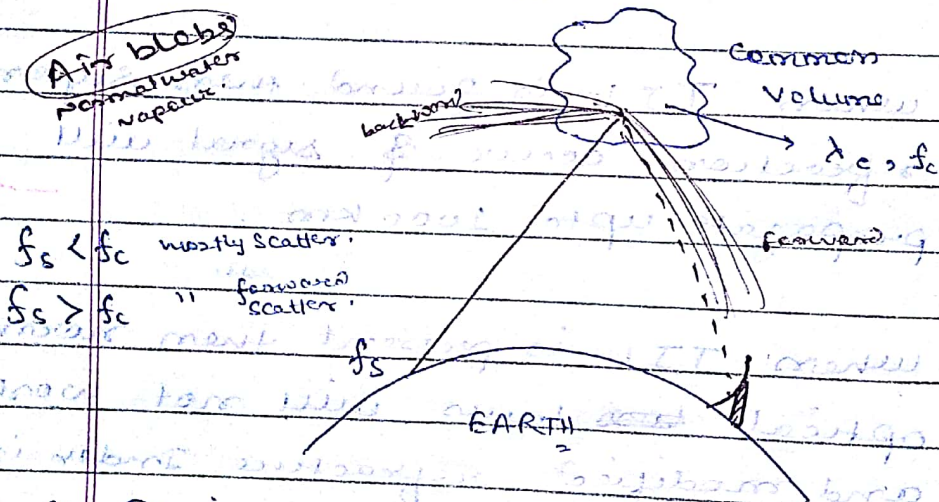 Air blobs
Normal water
vapour.
Common
Volume
backward
λc, fc
fs < fc mostly Scatter.
forward
fs > fc " forward
Scatter.
fs
EARTH